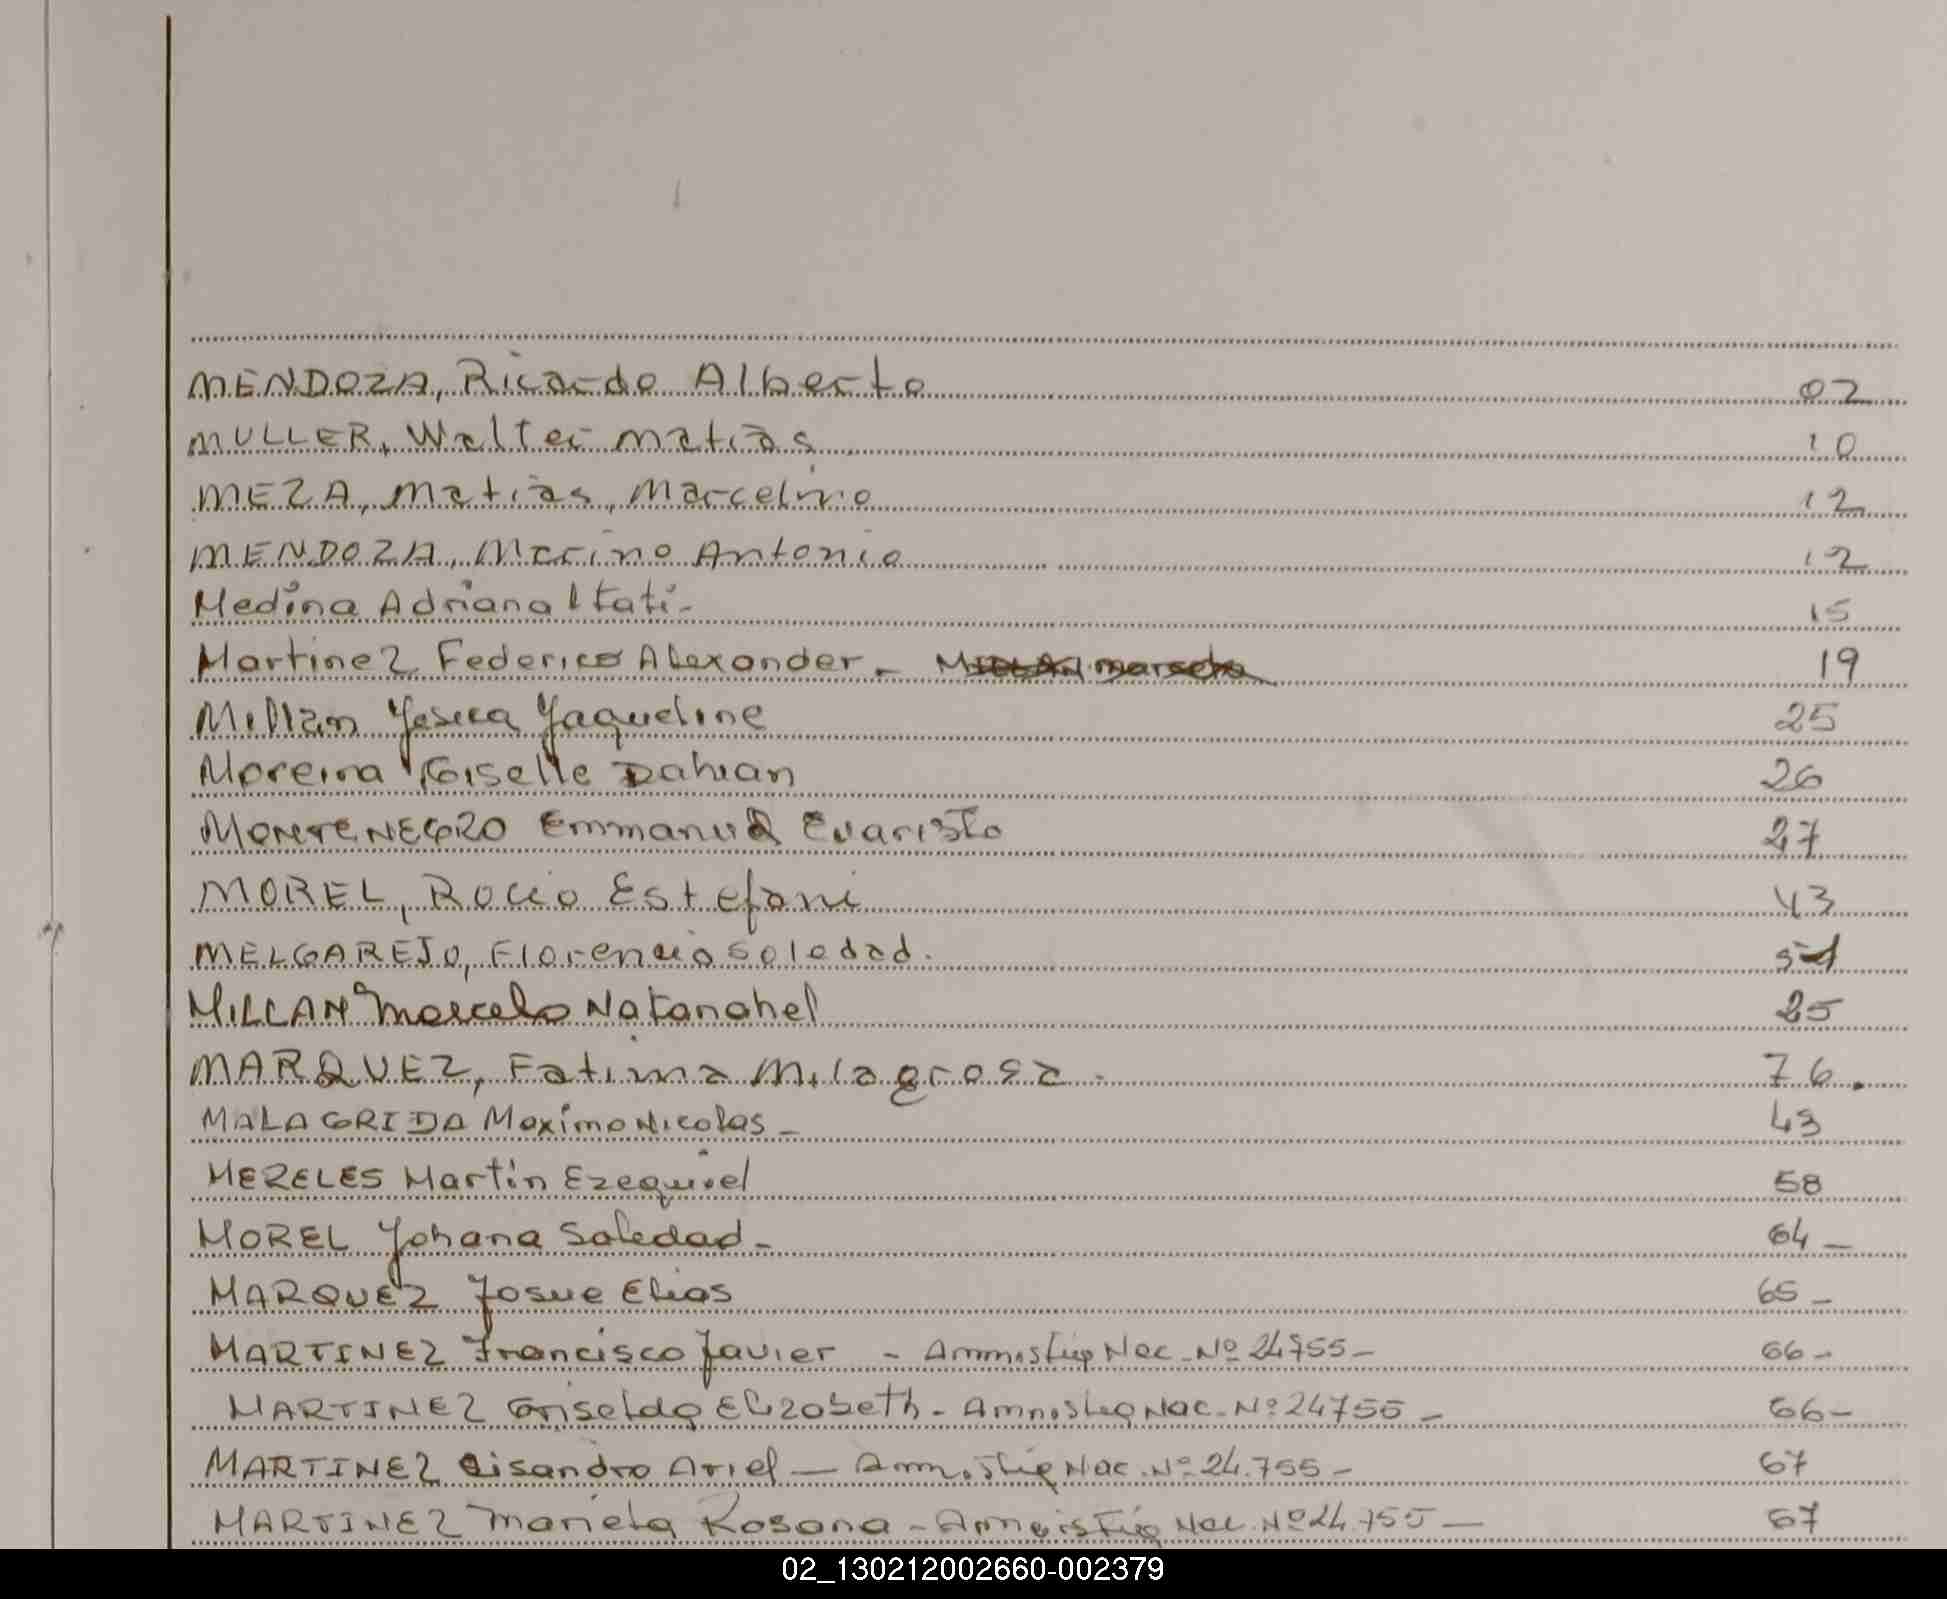 MENDOZA, Ricardo Alberto 02
MULLER, Walter Matias 10
MEZA, Matias, Marcelino 12
MENDOZA, Marino Antonio 12
Medina Adriana Itati- 15
Martinez Federico Alexander - 19
Millan Yesica Yaqueline 25
Moreira Giselle Dahian 26
MONTENEGRO Emmanuel Evaristo 27
MOREL, Rocio Estefani 43
MELGAREJO, Florencia Soledad. 51
MILLAN Marcelo Natanahel 25
MARQUEZ, Fatima Milagrosa. 76.
MALAGRIDA Maximo Nicolas - 43
MERELES Martin Ezequiel 58
MOREL Yohana Soledad - 64 -
MARQUEZ Josue Elias 65 -
MARTINEZ Francisco Javier - Amnistia Nac. Nº 24755 - 66 -
MARTINEZ Griselda Elizabeth - Amnistia Nac. Nº 24755 - 66 -
MARTINEZ Lisandro Ariel - Amnistia Nac. Nº 24.755 - 67
MARTINEZ Mariela Rosana - Amnistia Nac. Nº 24.755 - 67
02_130212002660-002379